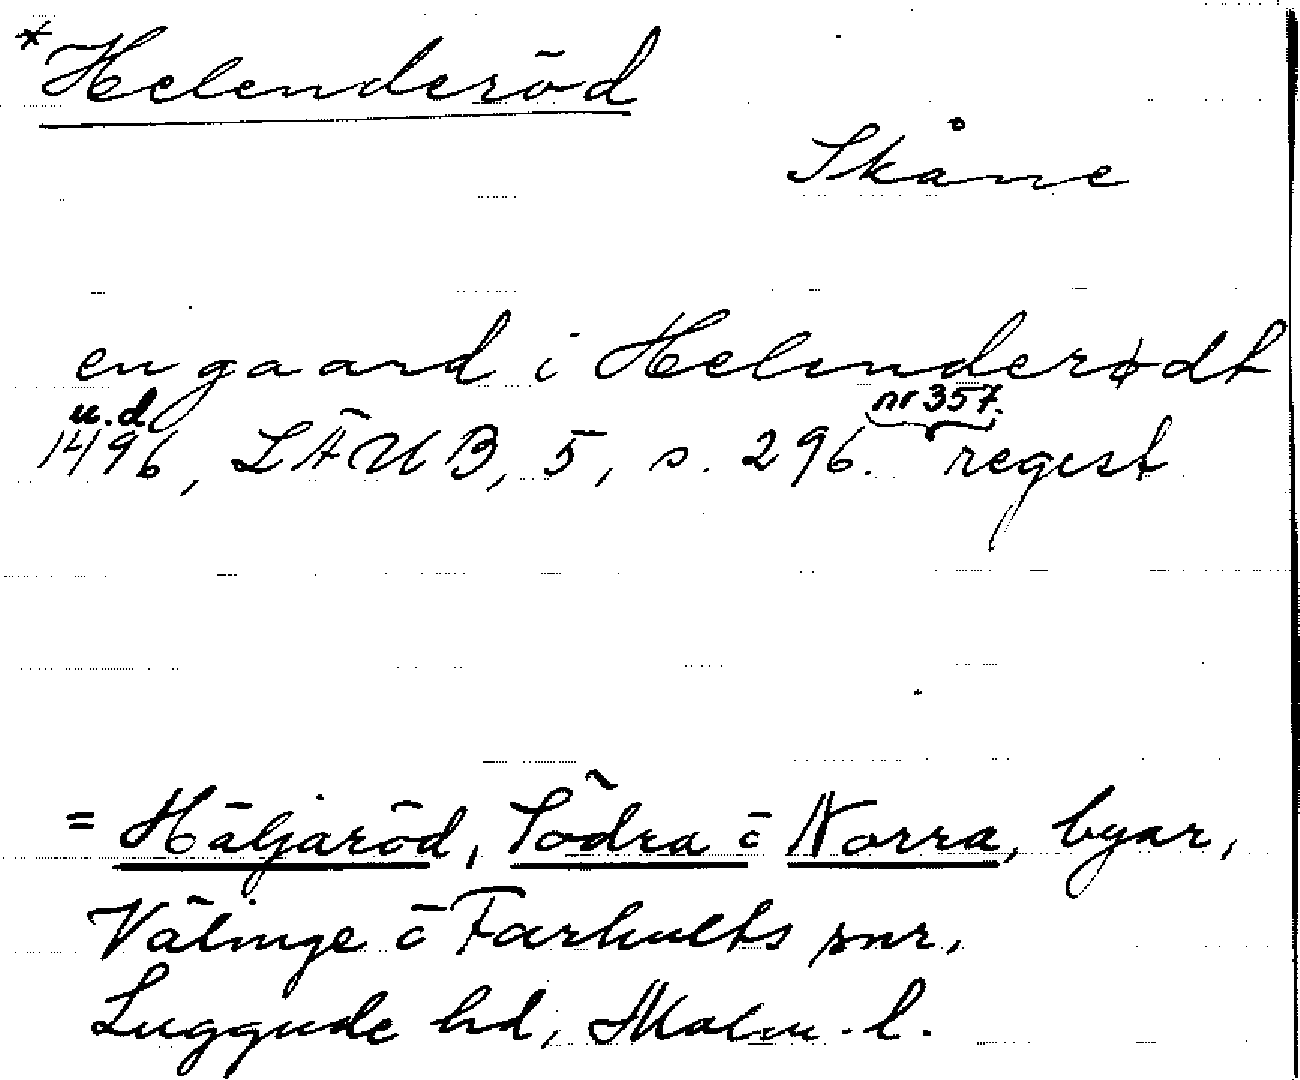 *Helenderöd
Skåne
en gaard i Helenderødt
u.d.
nr 357.
1496, LÄUB, 5, s. 296. regest
= Häljaröd, Södra o Norra, byar,
Välinge o Farhults snr,
Luggude hd, Malm. l.